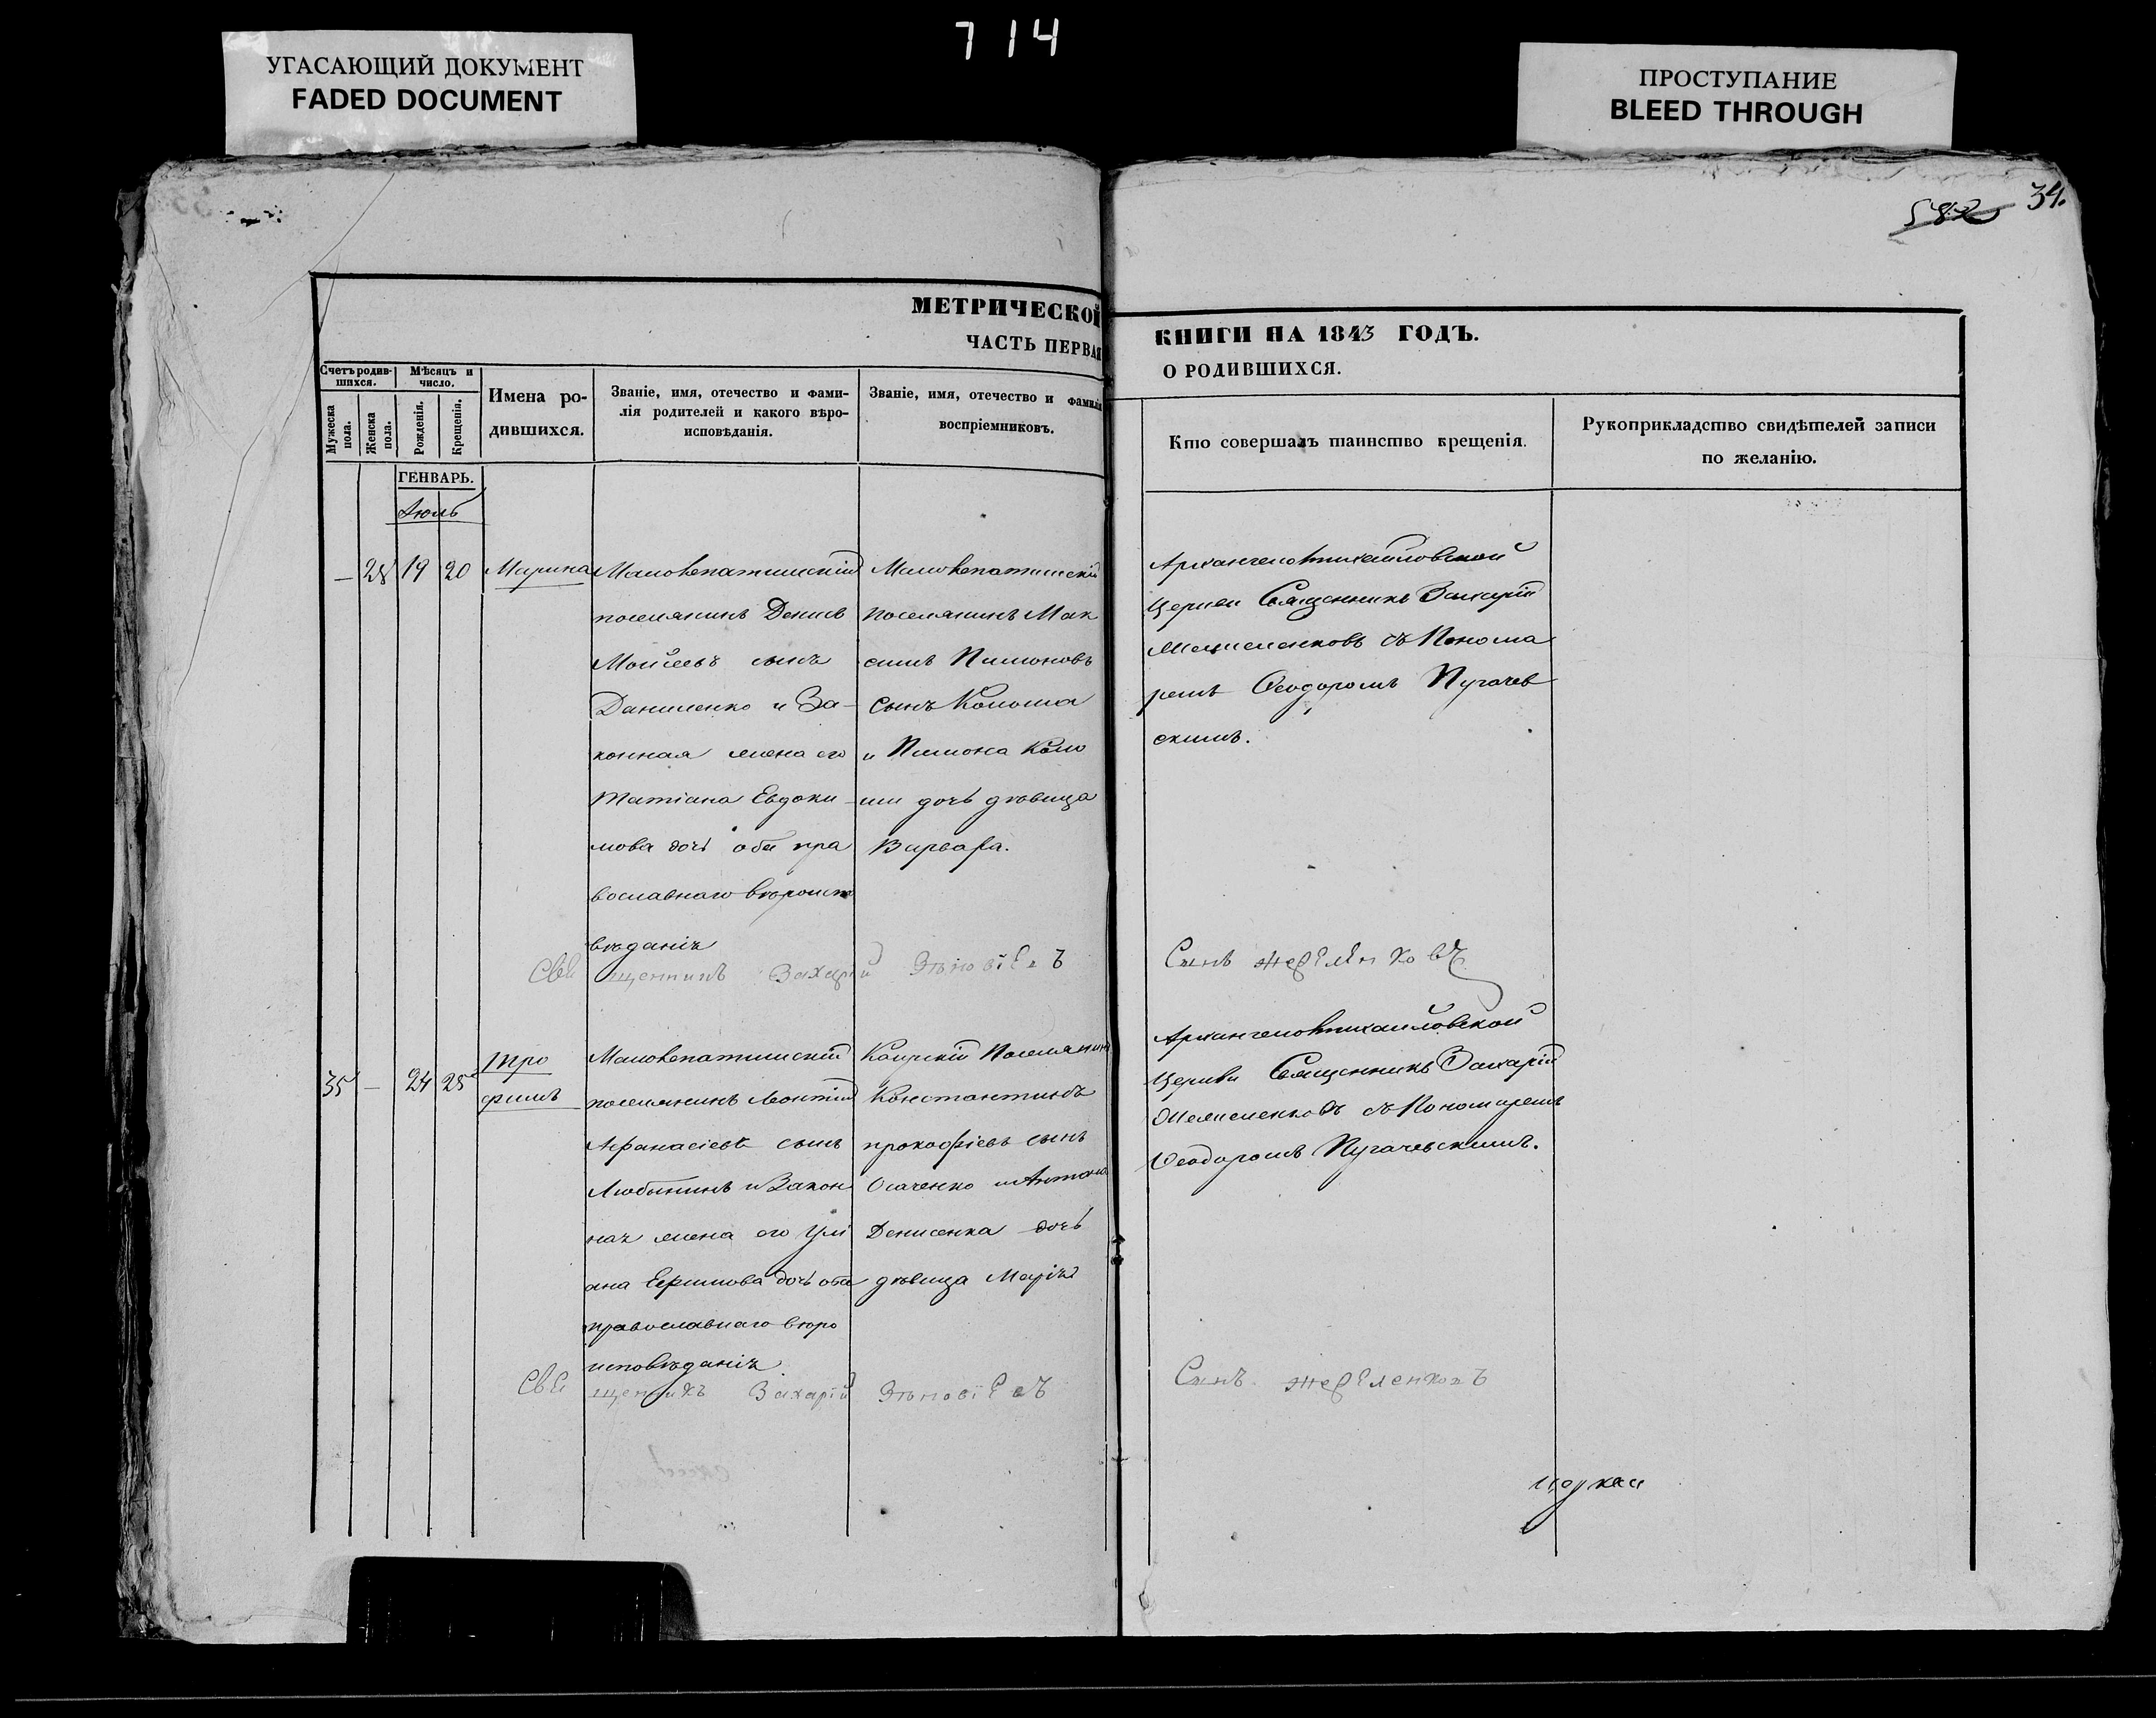 714
УГАСАЮЩИЙ ДОКУМЕНТ
FADED DOCUMENT
ПРОСТУПАНИЕ
BLEED THROUGH
34.
582
МЕТРИЧЕСКОЙ
ЧАСТЬ ПЕРВАЯ
КНИГИ НА 1843 ГОДЪ.
О РОДИВШИХСЯ.
Счетъ родив-
шихся.
Мѣсяцъ и
число.
Мужеска
пола.
Женска
пола.
Рожденія.
Крещенія.
Имена ро-
дившихся.
Званіе, имя, отечество и фами-
лія родителей и какого вѣро-
исповѣданія.
Званіе, имя, отечество и фамилія
воспріемниковъ.
Кто совершалъ таинство крещенія.
Рукоприкладство свидѣтелей записи
по желанію.
ГЕНВАРЬ.
Іюль
— 28 19 20
Марина
Малокепатицскій
поселянинъ Денисъ
Моисеевъ сынъ
Даниленко и За-
конная жена его
Татіана Евдоки-
мова дочь оба пра
вославнаго вѣроиспо
вѣданія
Малокепатицскій
поселянинъ Мак
симъ Пимоновъ
сынъ Колома
и Пимона Коло
ми дочь дѣвица
Варвара.
Архангеломихайловской
Церкви Священникъ Захарій
съ Понома
ремъ Ѳеодоромъ Пугачев
скимъ.
Священникъ Захарій Зѣновіевъ
Сынъ
35 — 24 25
Тро
фимъ
Малокепатицскій
поселянинъ Леонтій
Афанасіевъ сынъ
Любынинъ и Закон
ная жена его Ули
ана Ефимова дочь оба
православнаго вѣро
исповѣданія
Каирскій Поселянинъ
Константинъ
прокофіевъ сынъ
Осаченко и Антона
Денисенка дочь
дѣвица Марія
Архангеломихаиловской
Церкви Священникъ Захарій
съ Пономаремъ
Ѳеодоромъ Пугачевскимъ.
Священникъ Захарій Зѣновіевъ
Сынъ